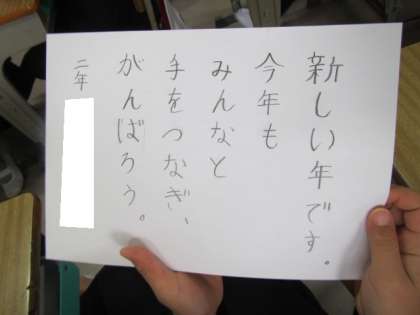 新しい年です。
今年も
みんなと
手をつなぎ、
がんばろう。
二年